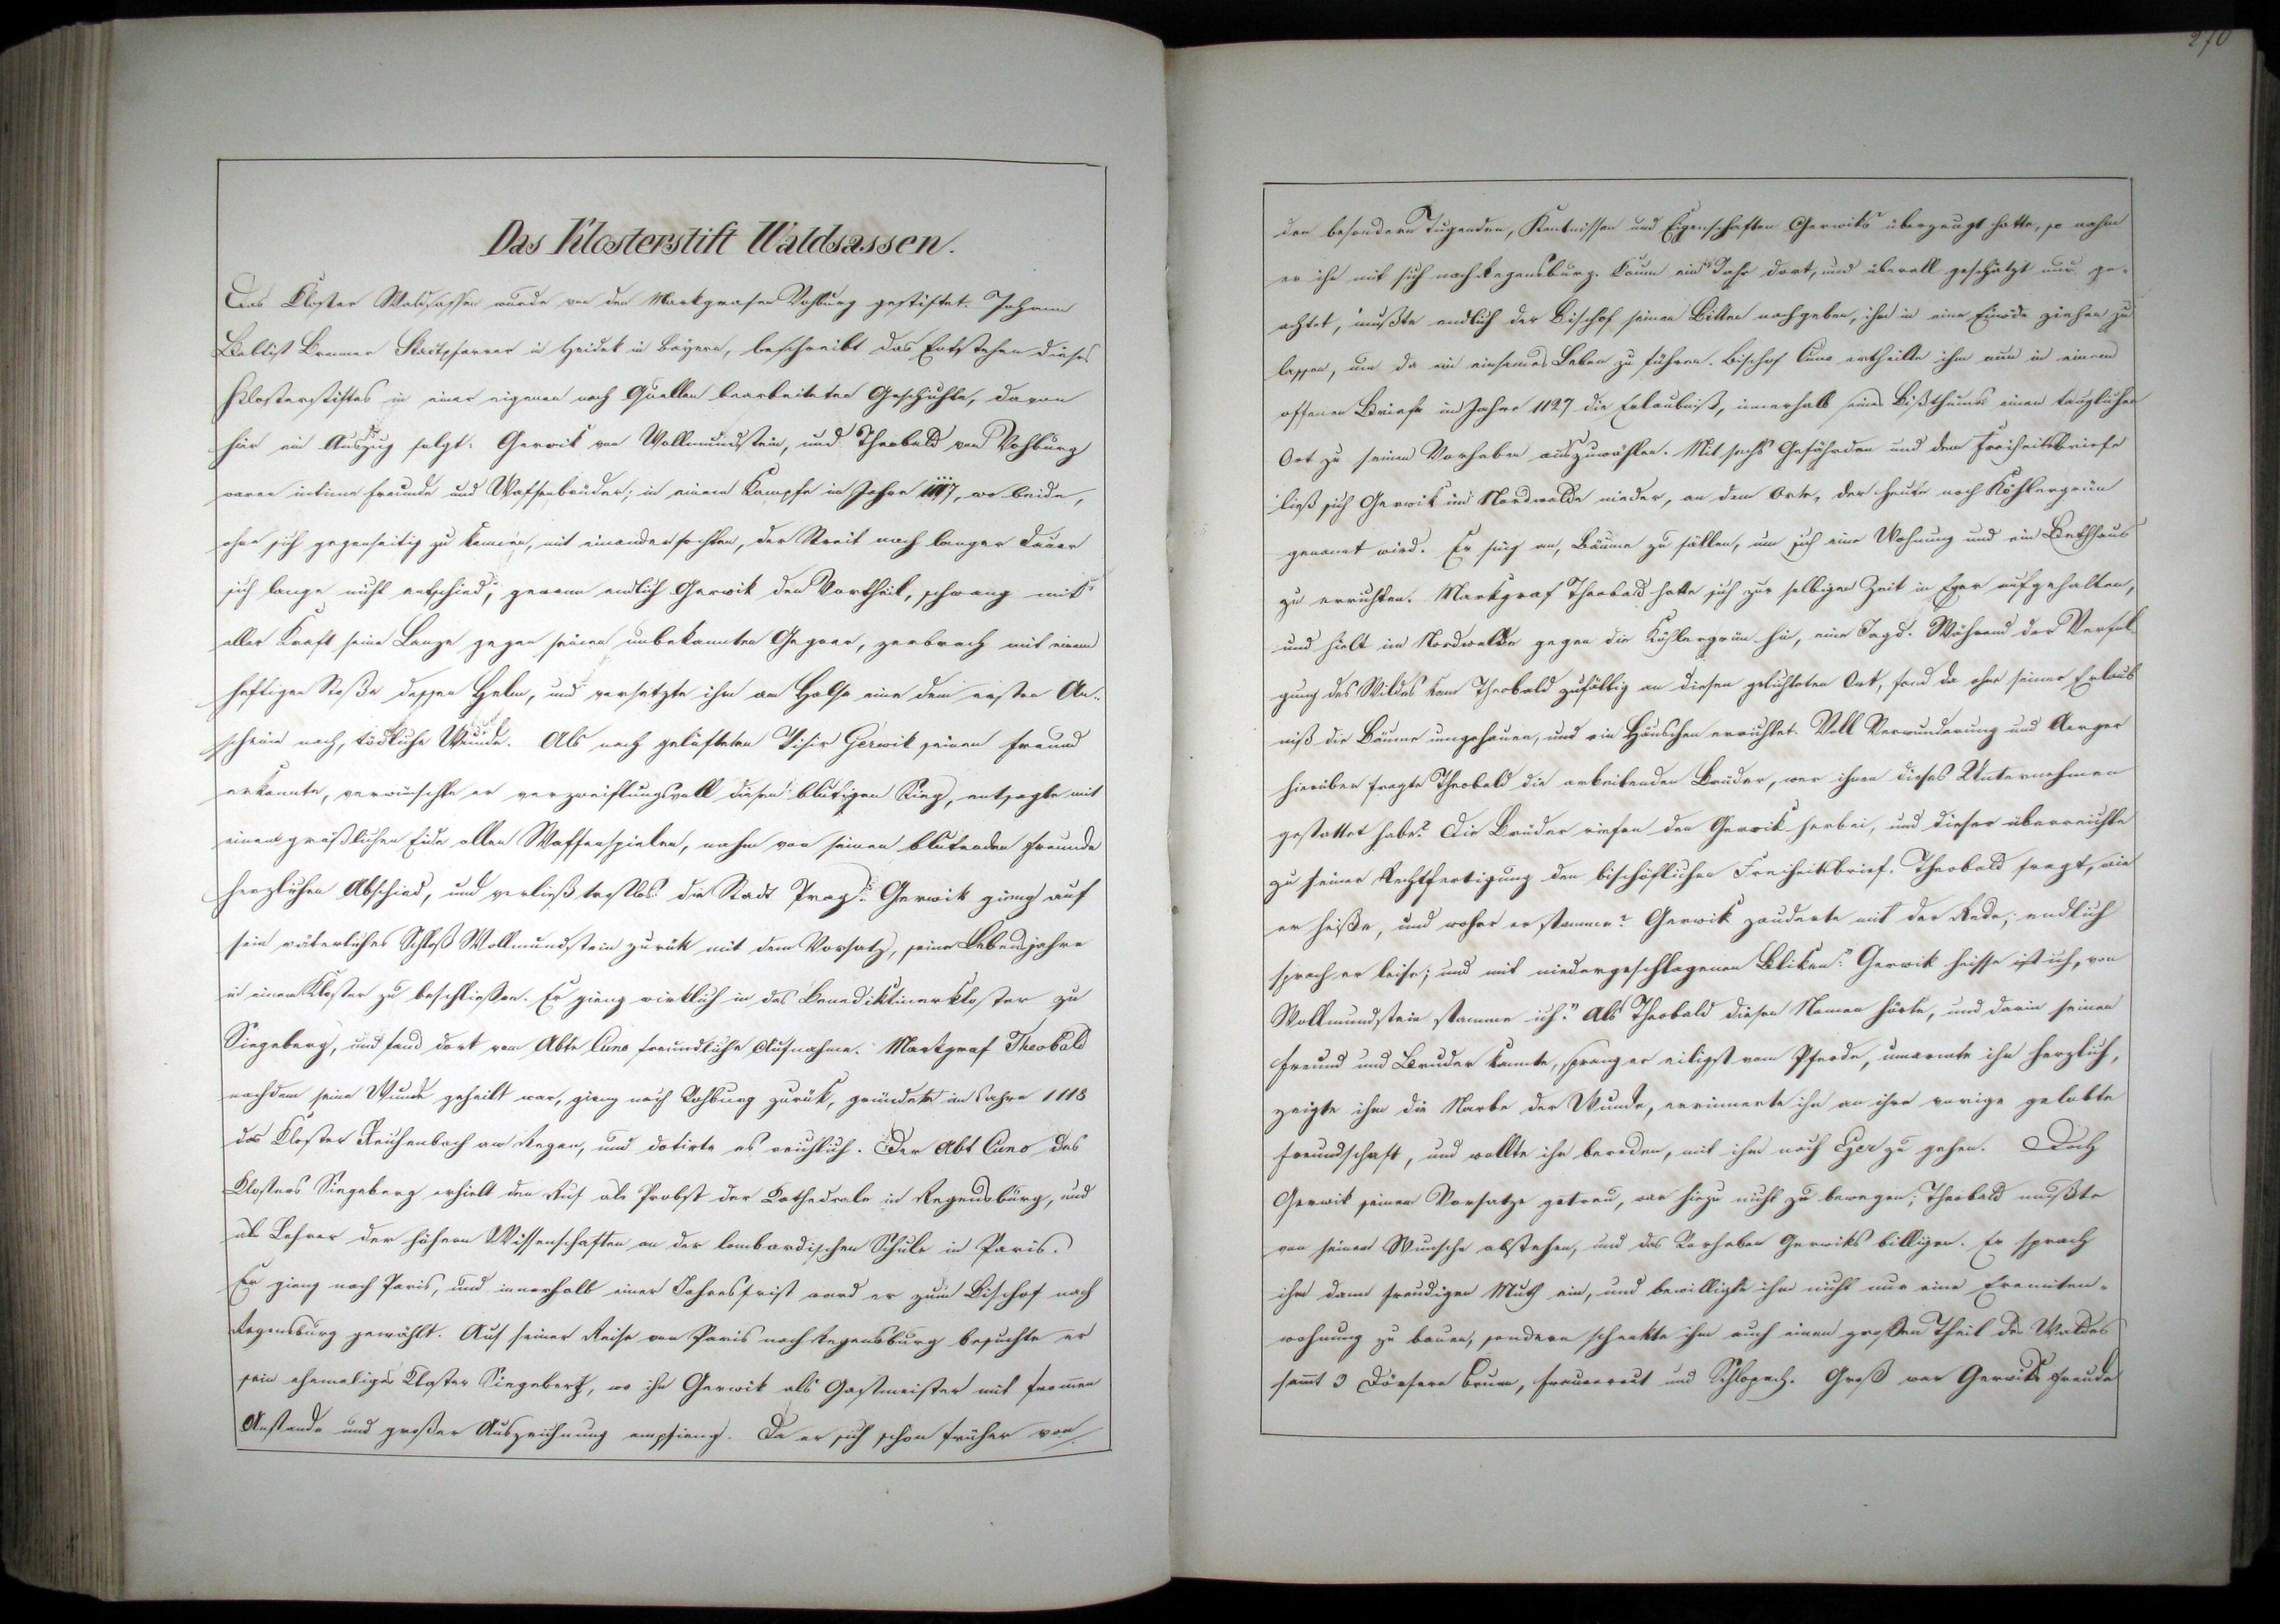 Das Klosterstift Waldsassen.
Das Kloster Waldsassen wurde von den Markgrafen Vohburg gestiftet. Johann
Babtist Brenner Stadtpfarrer in Heidek in Bayern, beschreibt das Entstehen dieses
Klosterstiftes in einer eigenen nach Quellen bearbeiteten Geschichte, davon
hier ein Auszug folgt. Gerwik von Wollmundstein, und Theobald von Vohburg
waren intime Freunde und Waffenbrüder; in einem Kampfe im Jahre 1117, wo beide,
ohne sich gegenseitig zu kennen, mit einander fochten, der Streit nach langer Dauer
sich lange nicht entschied; gewann endlich Gerwik den Vortheil, schwang mit
aller Kraft seine Lanze gegen seinen unbekannten Gegner, zerbrach mit einem
heftigen Stoße dessen Helm, und versetzte ihm am Halse eine dem ersten An-
scheine nach, tödtliche Wunde. Als nach gelüfteten Visir Gerwik seinen Freund
erkannte, verwünschte er verzweiflungsvoll diesen blutigen Sieg, entsagte mit
einem gräßlichen Eide allen Waffenspielen, nahm von seinen blutenden Freunde
herzlichen Abschied, und verließ trostlos die Stadt Prag. Gerwik gieng auf
sein väterliches Schloß Wollmundstein zurük mit dem Vorsatz, seine Lebensjahre
in einem Kloster zu beschließen. Er gieng wirklich in das Benediktinerkloster zu
Siegeberg, und fand dort vom Abte Cuno freundliche Aufnahme. Markgraf Theobald
nachdem seine Wunde geheilt war, gieng nach Vohburg zurük, gründete im Jahre 1118
das Kloster Reichenbach am Regen, und dotirte es reichlich. Der Abt Cuno des
Klosters Siegeberg erhielt den Ruf als Probst der Kathedrale in Regensburg, und
als Lehrer der höhern Wissenschaften an der lombardischen Schule in Paris.
Er gieng nach Paris, und innerhalb einer Jahresfrist ward er zum Bischof nach
Regensburg gewählt. Auf seiner Reise von Paris nach Regensburg besuchte er
sein ehemaliges Kloster Siegeberg, wo ihn Gerwik als Gastmeister mit frommen
Anstande und großer Auszeichnung empfieng. Da er sich schon früher von
270
den besondern Tugenden, Kentnissen und Eigenschaften Gerwiks überzeugt hatte, so nahm
er ihn mit sich nach Regensburg. Kaum ein Jahr dort, und überall geschätzt und ge-
achtet, mußte endlich der Bischof seinen Bitten nachgeben, ihn in eine Einöde ziehen zu
lassen, um da ein einsames Leben zu führen. Bischof Cuno ertheilte ihm nun in einem
offenen Briefe im Jahre 1127 die Erlaubniß, innerhalb seines Bißthums einen tauglichen
Ort zu seinen Vorhaben auszuwählen. Mit sechs Gefährden und dem Freiheitsbriefe
ließ sich Gerwik im Nordwalde nieder, an dem Orte, der heute noch Köhlergrün
genannt wird. Er fing an, Bäume zu fällen, um sich eine Wohnung und ein Bethhaus
zu errichten. Markgraf Theobald hatte sich zur selbigen Zeit in Eger aufgehalten,
und hielt im Nordwalde gegen die Köhlergrün hin, eine Jagd. Während der Verfol-
gung des Wildes kam Theobald zufällig an diesen gelichteten Ort, fand da ohne seiner Erlaub
niß die Bäume umgehauen, und ein Häuschen errichtet. Voll Verwunderung und Aerger
hierüber fragte Theobald die arbeitenden Brüder, wer ihnen dieses Unternehmen
gestattet habe? Die Brüder riefen den Gerwik herbei, und dieser überreichte
zu seiner Rechtfertigung den bischöflichen Freiheitsbrief. Theobald fragt, wie
er heiße, und woher er stamme? Gerwik zauderte mit der Rede; endlich
sprach er leise; und mit niedergeschlagenen Bliken: Gerwik heisse ich, von
Wollmundstein stamme ich." Als Theobald diesen Namen hörte, und darin seinen
Freund und Bruder kannte, sprang er eiligst vom Pferde, umarmte ihn herzlich,
zeigte ihm die Narbe der Wunde, errinnerte ihn an ihre vorige gelobte
Freundschaft, und wollte ihn bereden, mit ihm nach Eger zu gehen. Doch
Gerwik seinem Vorsatze getreu, war hiezu nicht zu bewegen; Theobald mußte
von seinem Wunsche abstehen, und das Vorhaben Gerwiks billigen. Er sprach
ihm dann freudigen Muth ein, und bewilligte ihm nicht nur eine Eremiten-
wohnung zu bauen, sondern schenkte ihm auch einen großen Theil des Waldes
sammt 3 Dörfern Brunn, Frauenreut und Schlopach. Groß war Gerwiks Freude